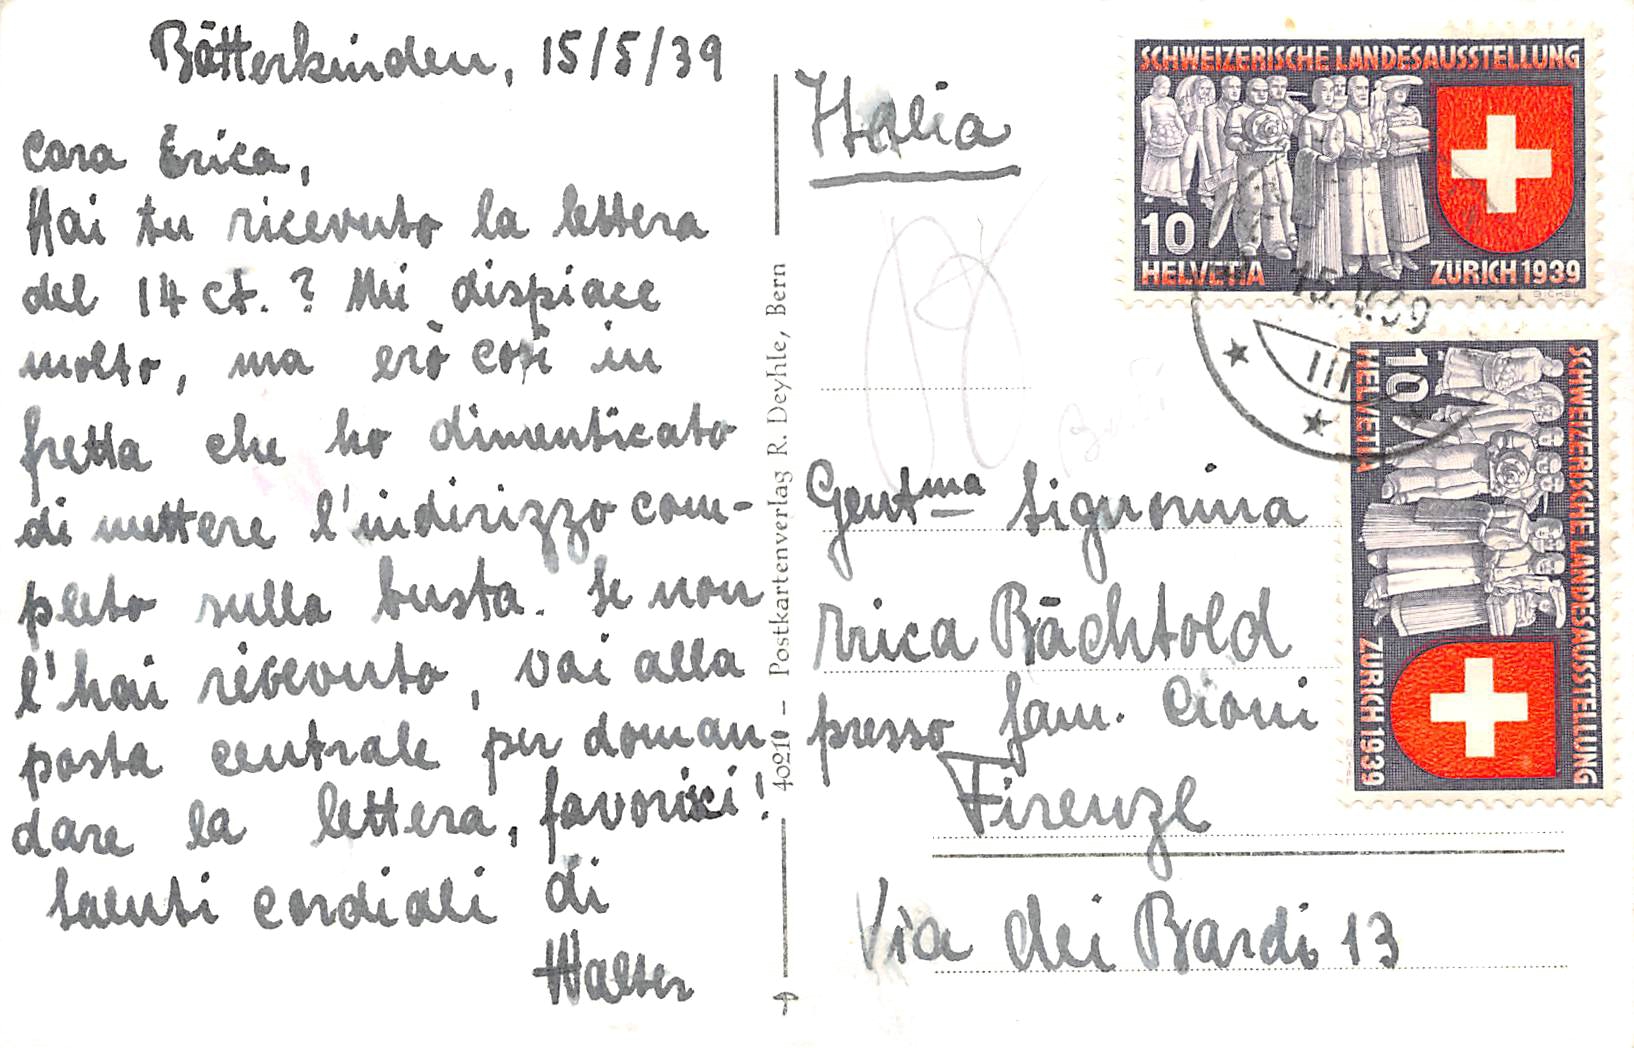 Bätterkinden, 15/5/39
Cara Erica,
Hai tu ricevuto la lettera
del 14 ct. ? Mi dispiace
molto, ma erò così in
fretta che ho dimenticato
di mettere l'indirizzo com-
pleto sulla busta. Se non
l'hai ricevuto, vai alla
posta centrale per doman
dare la lettera, favorisci!
Saluti cordiali di
Walter
40210 – Postkartenverlag R. Deyhle, Bern
Italia
Gentma Signorina
Errica Bächtold
presso fam. Cioni
Firenze
Via dei Bardi 13
SCHWEIZERISCHE LANDESAUSSTELLUNG
10
HELVETIA
ZÜRICH 1939
15.V.39
III
SCHWEIZERISCHE LANDESAUSSTELLUNG
10
HELVETIA
ZÜRICH 1939